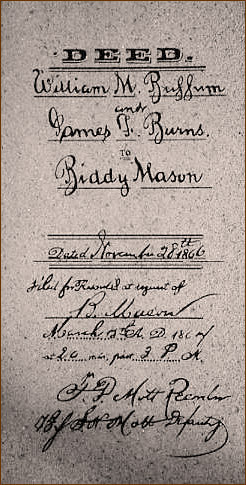 DEED.
William M. Buffum
and
James F. Burns.
TO
Biddy Mason
Dated November 28th 1866
Filed for Record at request of
B. Mason
March A. D. 186
at 20 min. past 3 P. M.
Mott Recorder
By Mott Deputy